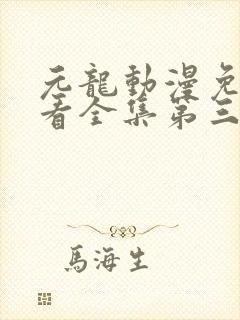 元龍動漫免
看全集第三
馬海生